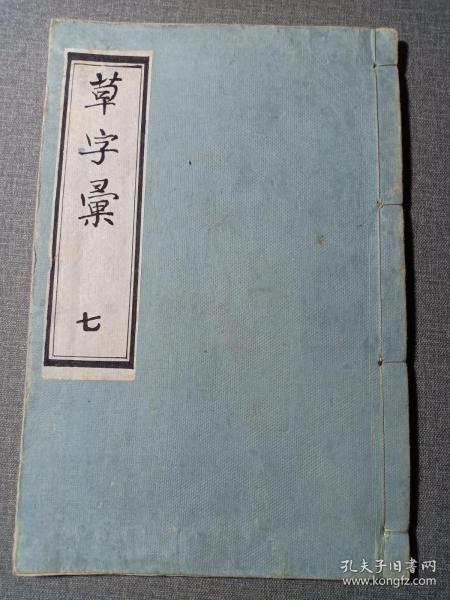 草字彙
七
孔夫子旧书网
www.kongfz.com